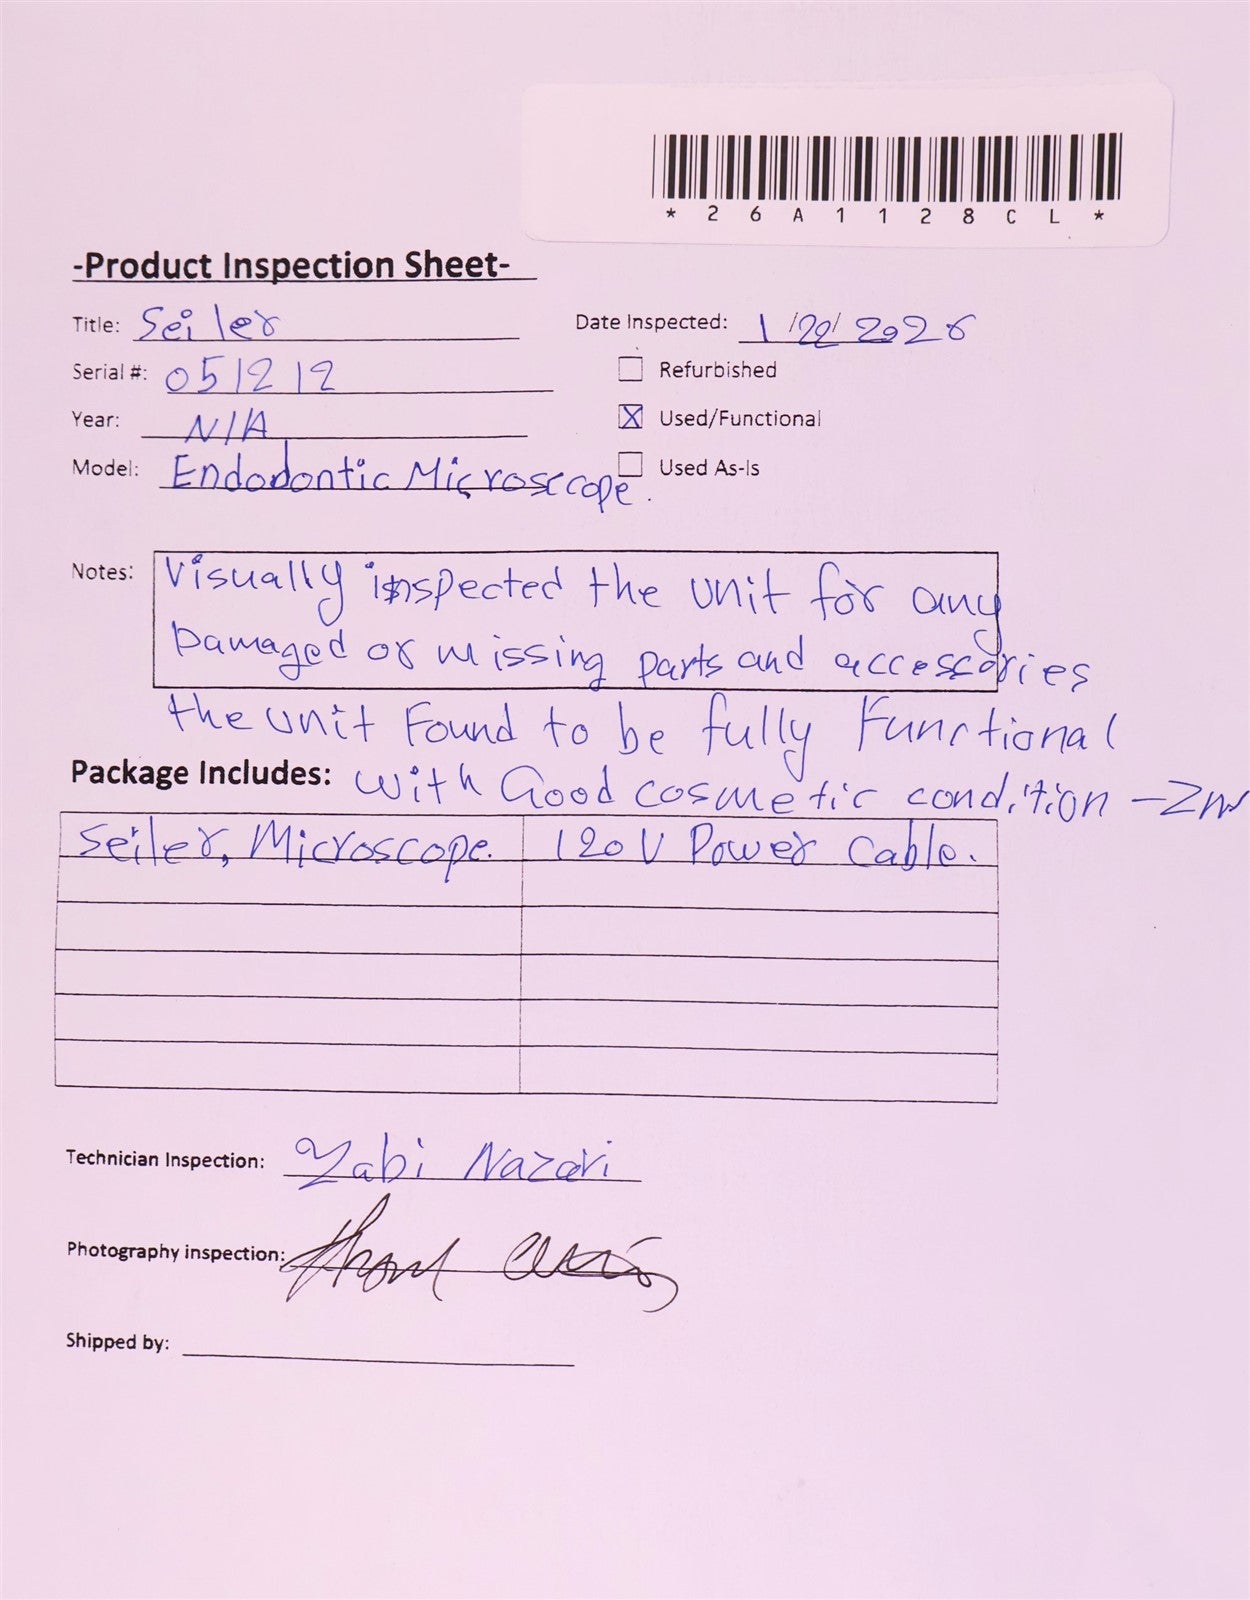 * 2 6 A 1 1 2 8 C L *
-Product Inspection Sheet-
Title: Seiler
Date Inspected: 1/22/2026
Serial #: 051212
Refurbished
Year: N/A
X Used/Functional
Model: Endodontic Microsccope.
Used As-Is
Notes: Visually inspected the unit for any
Damaged or missing parts and accessories
the unit Found to be fully Functional
Package Includes: with Good cosmetic condition -ZN
Seiler, Microscope. 120V Power Cable.
Technician Inspection: Zabi Nazari
Photography inspection:
Shipped by: